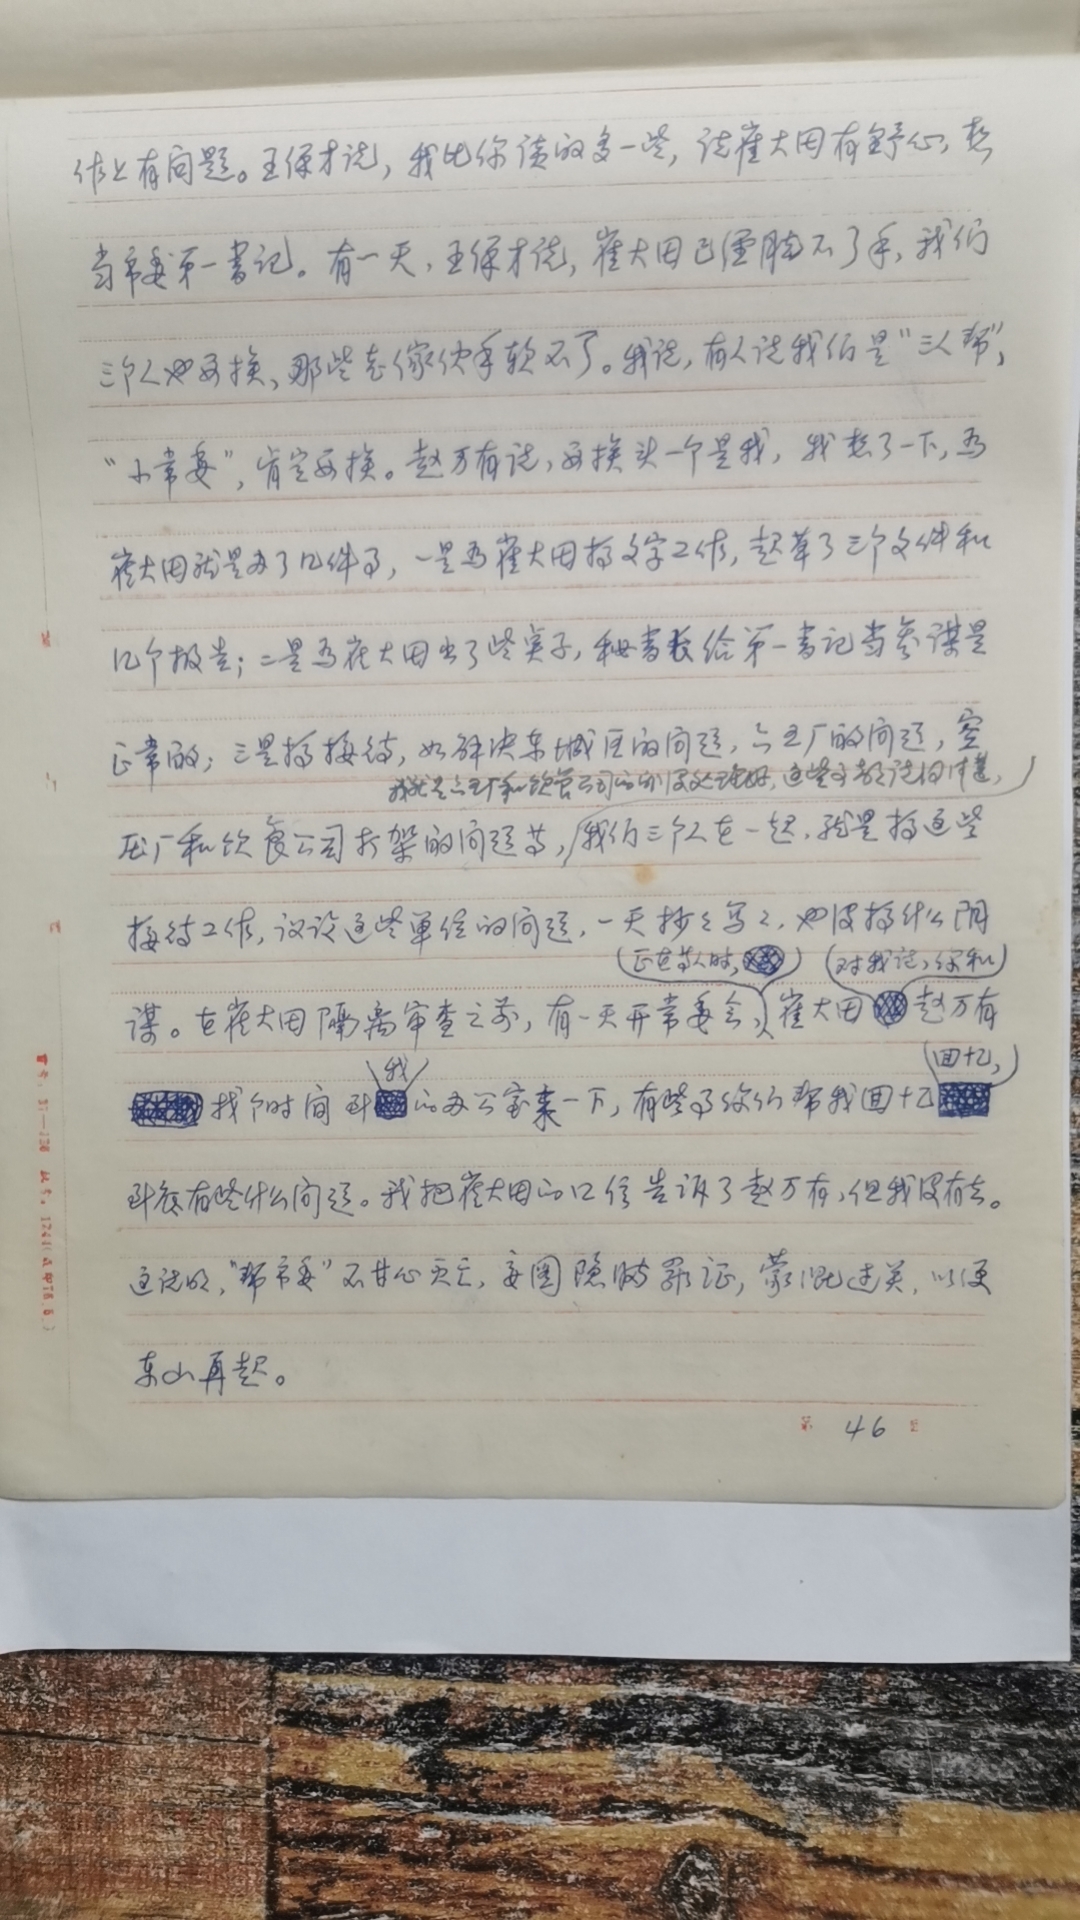 作上有问题。王保才说，我比你读的多一些，说崔大田有野心，想
当市委第一书记。有一天，王保才说，崔大田已经脱不了手，我们
三个人也要换，那些老家伙手软不了。我说，有人说我们是“三人帮”，
“小常委”，肯定要换。赵万有说，要换头一个是我，我想了一下，为
崔大田就是办了几件事，一是为崔大田搞文字工作，起草了三个文件和
几个报告；二是为崔大田出了些点子，秘书长给第一书记当参谋是
正常的；三是搞接待，如解决东城区的问题，六五厂的问题，空
我就是六五厂和饮食公司的没处理好，这些主要说得清楚，
压厂和饮食公司打架的问题等，我们三个人在一起，就是搞这些
接待工作，议论这些单位的问题，一天抄抄写写，也没搞什么阴
（正在等人时，）（对我说，你和）
谋。在崔大田隔离审查之前，有一天开常委会，崔大田赵万有
我 回忆，
找个时间到的办公室来一下，有些事你们帮我回忆
到底有些什么问题。我把崔大田的口信告诉了赵万有，但我没有去。
这说明，“帮市委”不甘心灭亡，妄图隐瞒罪证，蒙混过关，以便
东山再起。
第 46 页